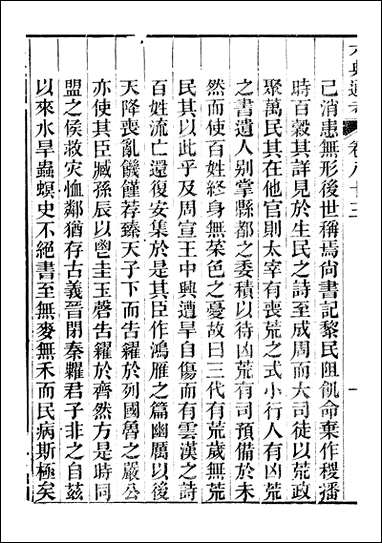 六典通考 卷八十三 一
己消患無形後世稱焉尙書記黎民阻飢命棄作稷播
時百穀其詳見於生民之詩至成周而大司徒以荒政
聚萬民其在他官則太宰有喪荒之式小行人有凶荒
之書遺人别掌縣都之委積以待凶荒有司預備於未
然而使百姓終身無菜色之憂故曰三代有荒歲無荒
民其以此乎及周宣王中興遭旱自傷而有雲漢之詩
百姓流亡還復安集於是其臣作鴻雁之篇幽厲以後
天降喪亂饑饉荐臻天子下而告糴於列國魯之嚴公
亦使其臣臧孫辰以鬯圭玉磬吿糴於齊然方是時同
盟之侯救災恤鄰猶存古義晉閉秦糴君子非之自茲
以來水旱蟲螟史不絕書至無麥無禾而民病斯極矣